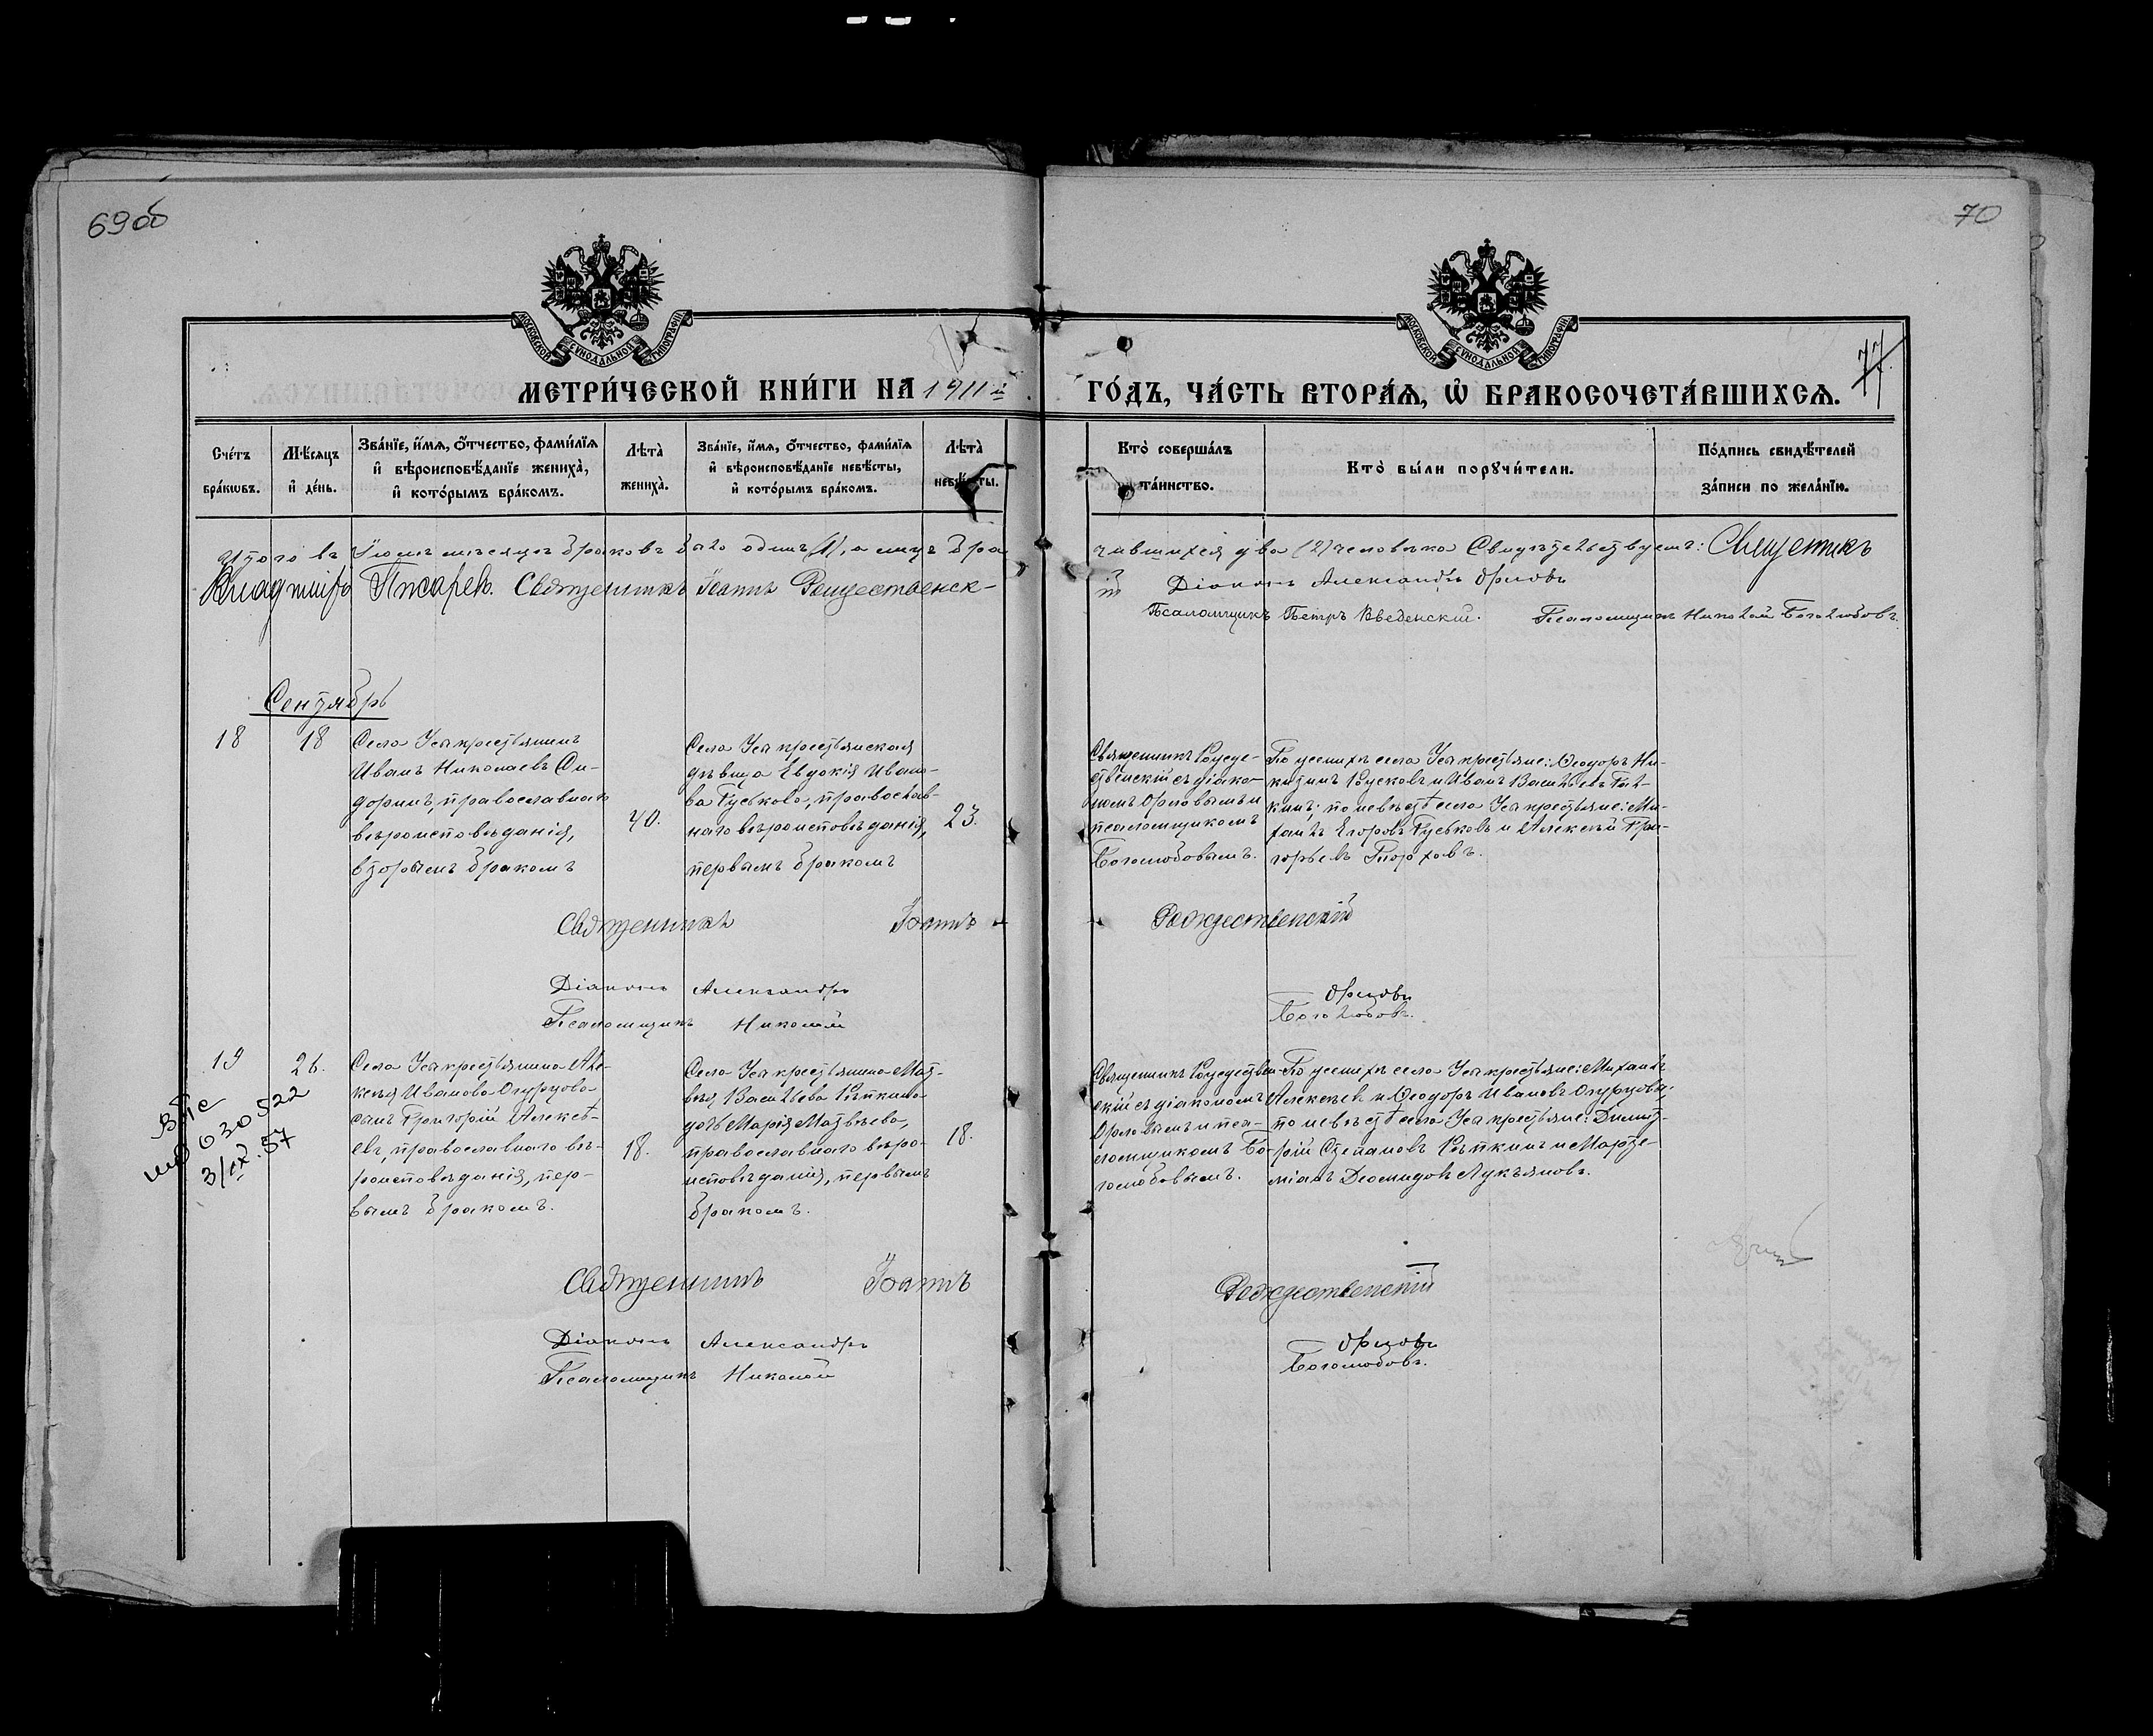 69 об
70
МОСКОВСКОЙ СѴНОДАЛЬНОЙ ТИПОГРАФІИ
МОСКОВСКОЙ СѴНОДАЛЬНОЙ ТИПОГРАФІИ
77.
МЕТРИ́ЧЕСКОЙ КНИ́ГИ НА 1911 й ГО́ДЪ, ЧА́СТЬ ВТОРА́Ѧ, Ѡ҆ БРАКОСОЧЕТА́ВШИХСѦ.
Сче́тъ бра́кѡвъ.
Мѣ́сяцъ и҆ де́нь.
Зва́нїе, и҆́мѧ, ѻ҆́тчество, фами́лїѧ
и҆ вѣроисповѣ́данїе жениха̀,
и҆ кото́рымъ бра́комъ.
Лѣта̀ жениха̀.
Зва́нїе, и҆́мѧ, ѻ҆́тчество, фами́лїѧ
и҆ вѣроисповѣ́данїе невѣ́сты,
и҆ кото́рымъ бра́комъ.
Лѣта̀ невѣ́сты.
Кто̀ соверша́лъ та́инство.
Кто̀ бы́ли порꙋчи́тели.
По́дпись свидѣ́телей
за́писи по жела́нїю.
Итого въ Іюлѣ мѣсяцѣ браковъ было одинъ (1), а лицъ бра
чившихся два (2) человѣка Свидѣтельствуемъ: Священникъ
Владиміръ Писаревъ. Священникъ Іоаннъ Рождественск-
ій Діаконъ Александръ Орловъ
Псаломщикъ Петръ Введенскій. Псаломщикъ Николай Боголюбовъ.
Сентябрь
18
18
Села Усъ крестьянинъ
Иванъ Николаевъ Си-
доринъ, православнаго
вѣроисповѣданія,
вторымъ бракомъ
40.
Села Усъ крестьянская
дѣвица Евдокія Ивано-
ва Гуськова, православ-
наго вѣроисповѣданія,
первымъ бракомъ
23.
Священникъ Рождe-
ственскій съ діако-
номъ Орловымъ и
псаломщикомъ
Боголюбовымъ.
По женихѣ села Усъ крестьяне: Ѳеодоръ Ни-
и Иванъ Васильевъ
по невѣстѣ села Усъ крестьяне: Ми-
хаилъ Егоровъ Гуськовъ и Алексѣй Гри-
горьевъ
Священникъ Іоаннъ Рождественскій
Діаконъ Александръ Орловъ
Псаломщикъ Николай Боголюбовъ.
19
26.
Села Усъ крестьянина Але-
ксѣя Иванова Огурцова
сынъ Григорій Алексѣ-
евъ, православнаго вѣ-
роисповѣданія, пер-
вымъ бракомъ.
18.
Села Усъ крестьянина Мат-
вѣя Васильева Рѣпкина
дочь Марія Матвѣева,
православнаго вѣро-
исповѣданія, первымъ
бракомъ.
18.
Священникъ Рождествен-
скій съ діакономъ
Орловымъ и пса-
ломщикомъ Бо-
голюбовымъ.
По женихѣ села Усъ крестьяне: Михаилъ
Алексѣевъ и Ѳеодоръ Ивановъ Огурцовы;
по невѣстѣ села Усъ крестьяне: Димит-
рій Степановъ Рѣпкинъ и Марте-
міанъ Діомидовъ Лукьяновъ.
630522
3/IX. 57
Священникъ Іоаннъ Рождественскій
Діаконъ Александръ Орловъ
Псаломщикъ Николай Боголюбовъ.